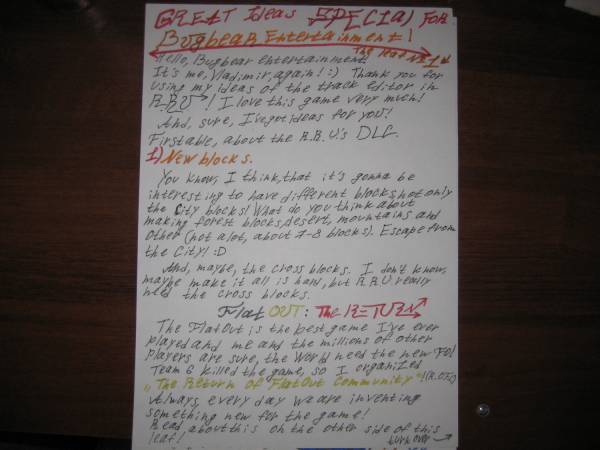 GREAT Ideas SPECIAl FOR
Bugbear Entertainment!
The leaf № 1
Hello, Bugbear entertainment!
It's me, Vladimir, again! :) Thank you for
using my ideas of the track editor in
R.R.U! I love this game very much!
And, sure, I've got ideas for you!
Firstable, about the R.R.U's DLC.
1) New blocks.
You know, I think, that it's gonna be
interesting to have different blocks, not only
the City blocks! What do you think about
making forest blocks, desert, mountains and
other (not a lot, about 7-8 blocks). Escape from
the City! :D
And, maybe, the cross blocks. I don't know,
maybe make it all is hard, but R.R.U really
need the cross blocks.
Flat OUT: The RETURN
The FlatOut is the best game I've ever
played and me and the millions of other
players are sure, the World need the new FO!
Team 6 killed the game, so I organized
„The Return Of FlatOut Community"!(R.O.F.C)
Always, every day we are inventing
something new for the game!
Read, about this on the other side of this
leaf!
turn over